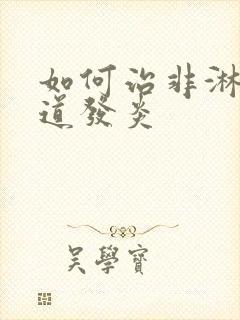 如何治非淋
道發炎
吴學寶